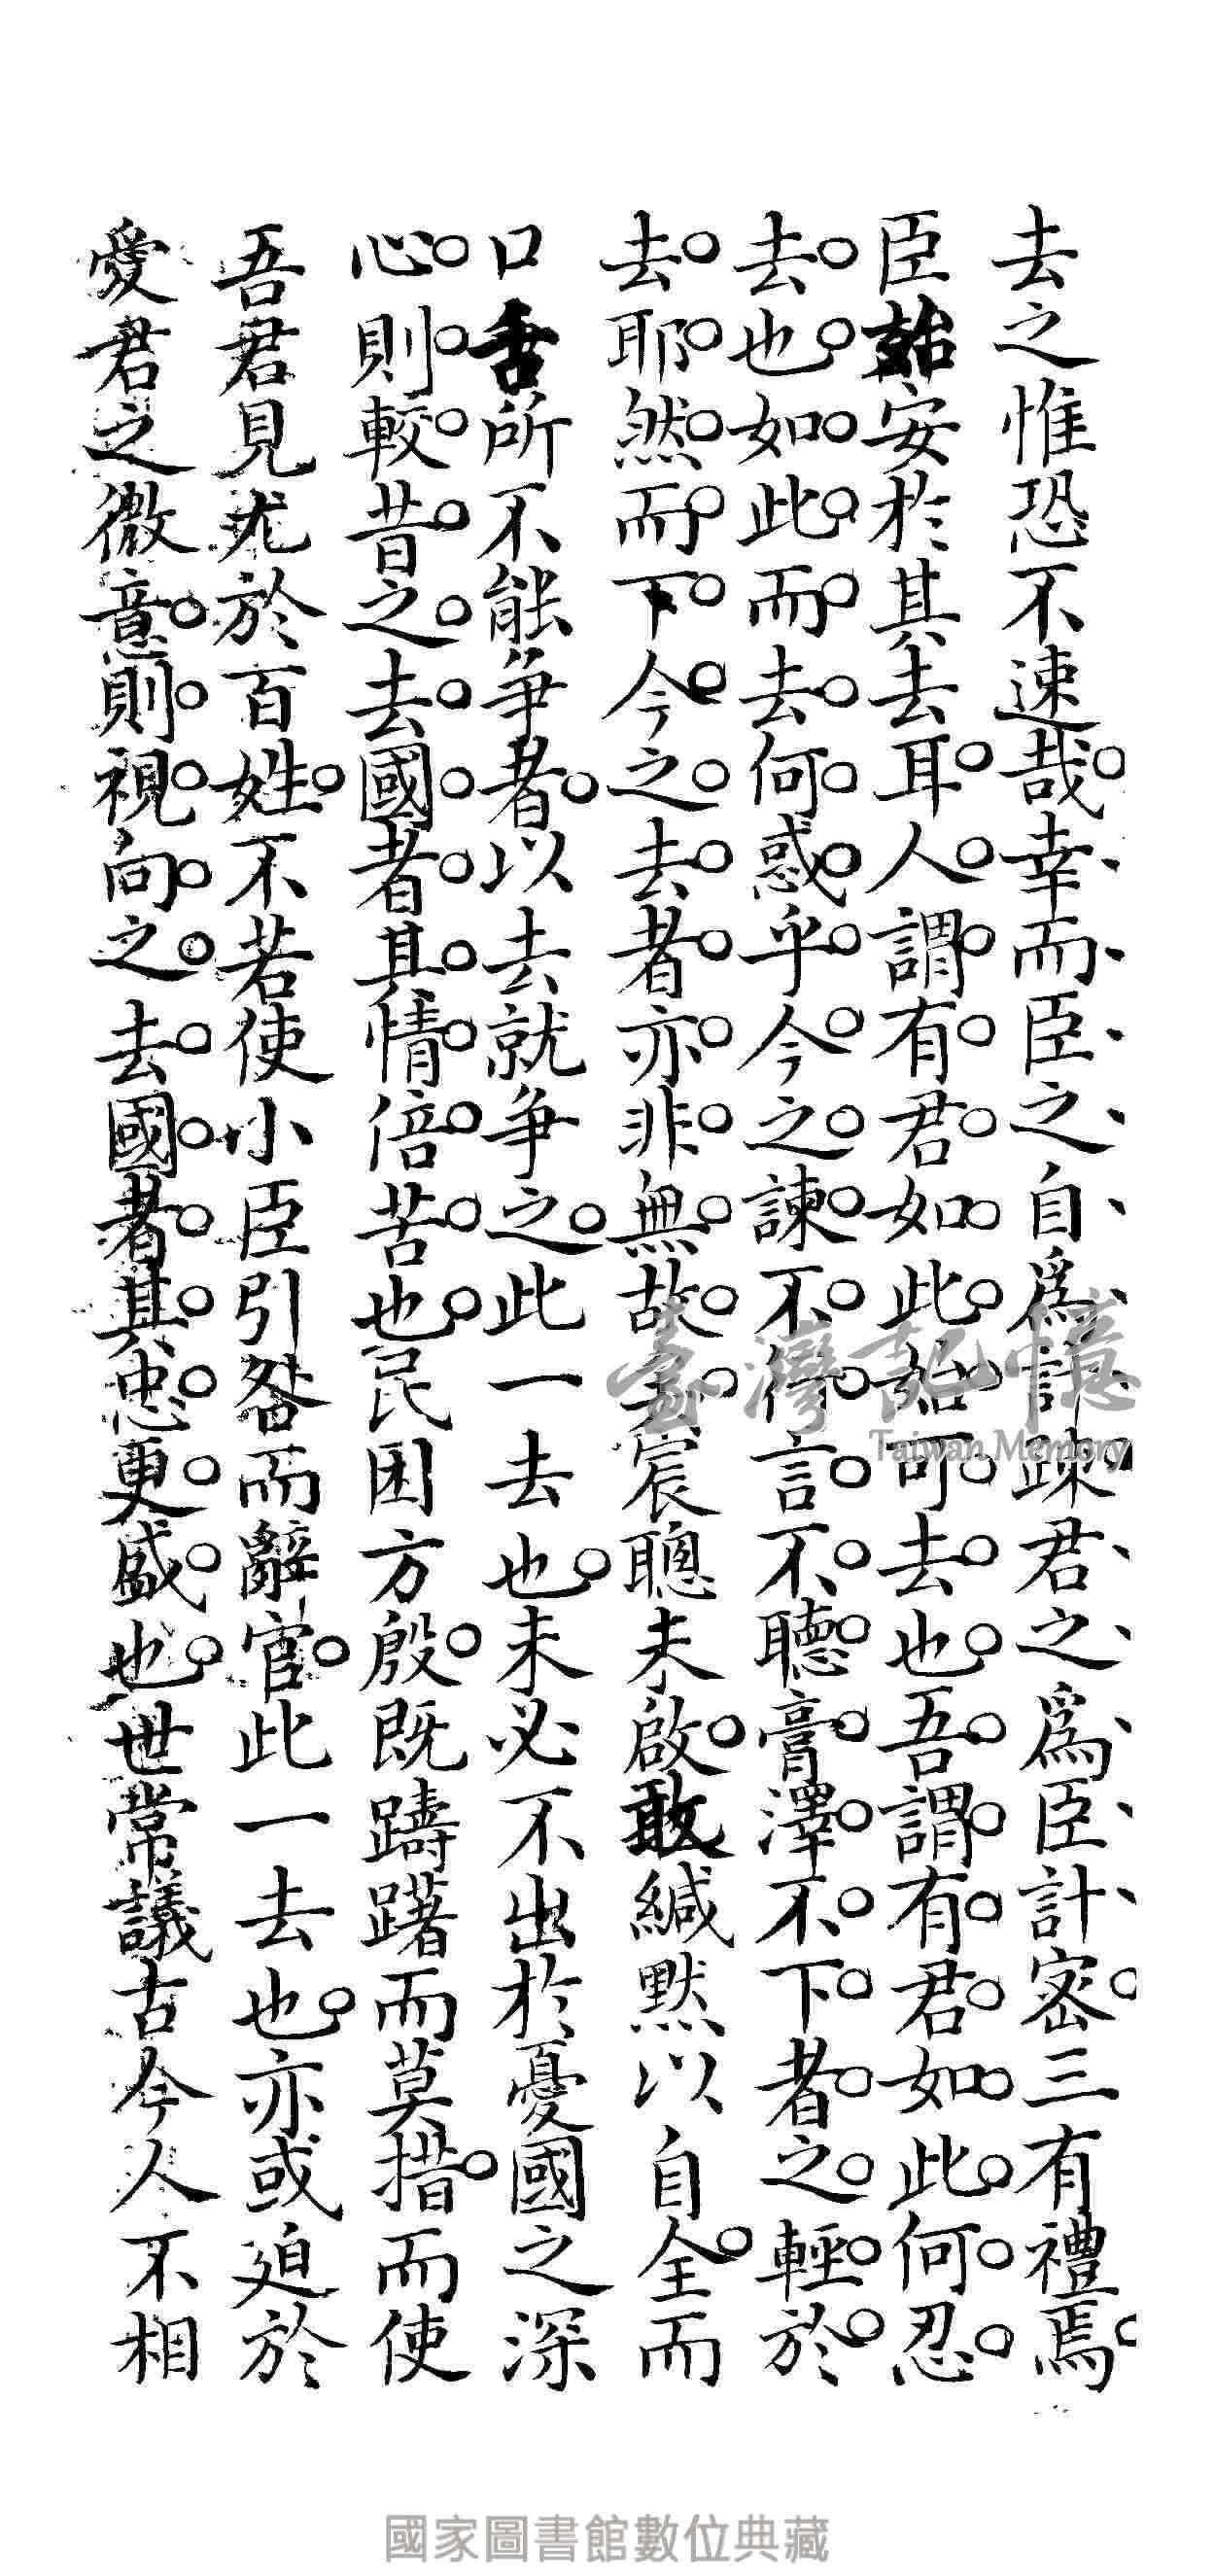 去之惟恐不速哉幸而臣之自爲計踈君之爲臣計密三有禮焉
臣始安於其去耳人謂有君如此始可去也吾謂有君如此何忍
去也如此而去何惑乎今之諫不行言不聽膏澤不下者之輕於
去耶然而下今之去者亦非無故矣宸聰未啟敢緘默以自全而
口舌所不能爭者以去就爭之此一去也未必不出於憂國之深
心則較昔之去國者其情倍苦也民困方殷既躊躇而莫措而使
吾君見尤於百姓不若使小臣引咎而辭官此一去也亦或廹於
愛君之微意則視向之去國者其忠更盛也世常議古今人不相
臺灣記憶
Taiwan Memory
國家圖書館數位典藏